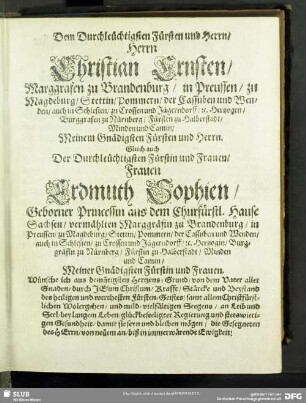 Dem Durchleüchtigsten Fürsten und Herrn/
Herrn
Christian Ernsten/
Marggrafen zu Brandenburg/ in Preussen/ zu
Magdeburg/ Stettin/ Pommern/ der Cassuben und Wen-
den/ auch in Schlesien/ zu Crossen und Jägerndorff/ ꝛc. Hertzogen/
Burggrafen zu Nürnberg/ Fürsten zu Halberstadt/
Minden und Camin/
Meinem Gnädigsten Fürsten und Herrn.
Gleich auch
Der Durchleüchtigsten Fürstin und Frauen/
Frauen
Erdmuth Sophien/
Geborner Princessin aus dem Churfürstl. Hause
Sachsen/ vermählten Marggräfin zu Brandenburg/ in
Preussen/ zu Magdeburg/ Stettin/ Pommern/ der Cassuben und Wenden/
auch in Schlesien/ zu Crossen und Jägerndorff/ ꝛc. Hertzogin/ Burg-
gräfin zu Nürnberg/ Fürstin zu Halberstadt/ Minden
und Camin/
Meiner Gnädigsten Fürstin und Frauen.
Wünsche ich aus demütigsten Hertzens-Grund/ von dem Vater aller
Gnaden/ durch JEsum Christum/ Krafft/ Stärcke und Beystand
des heiligen und werthesten Fürsten-Geistes/ samt allem Christfürst-
lichen Wolergehen/ und mild-vielfältigen Seegens/ an Leib und
Seel bey langem Leben/ glückbeseeligter Regierung und stetswieri-
gen Gesundheit/ damit sie seyen und bleiben mögen/ die Gesegneten
des HErrn/ von nun an/ biß in immerwärende Ewigkeit;
SLUB
Wir führen Wissen.